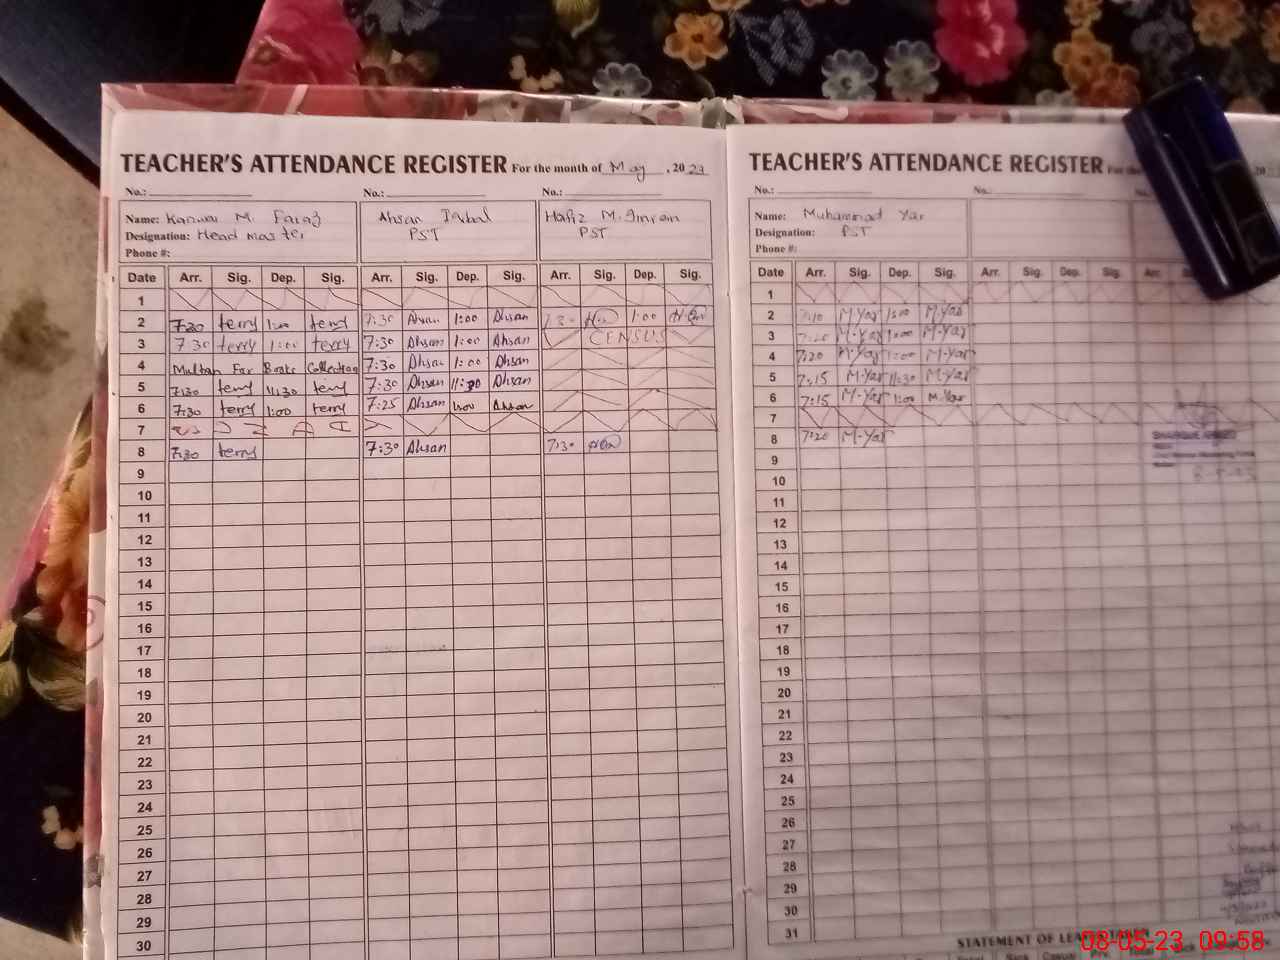 TEACHER'S ATTENDANCE REGISTER For the month of May, 2023
No.: No.: No.:
Name: Kanwar M. Faraz Ahsan Iqbal Hafiz M. Imran
Designation: Head master PST PST
Phone #:
Date Arr. Sig. Dep. Sig. Arr. Sig. Dep. Sig. Arr. Sig. Dep. Sig.
1
2 7:30 1:00 7:30 Ahsan 1:00 Ahsan 7:30 1:00
3 7:30 1:00 7:30 Ahsan 1:00 Ahsan CENSUS
4 Multan For Books Collection 7:30 Ahsan 1:00 Ahsan
5 7:30 11:30 7:30 Ahsan 11:30 Ahsan
6 7:30 1:00 7:25 Ahsan 1:00 Ahsan
7
8 7:30 7:30 Ahsan 7:30
9
10
11
12
13
14
15
16
17
18
19
20
21
22
23
24
25
26
27
28
29
30
TEACHER'S ATTENDANCE REGISTER For
20
No.: No.: No.
Name: Muhammad Yar
Designation: PST
Phone #:
Date Arr. Sig. Dep. Sig. Arr. Sig. Dep. Sig. Arr.
1
2 7:10 M.Yar 1:00 M.Yar
3 7:20 M.Yar 1:00 M.Yar
4 7:20 M.Yar 1:00 M.Yar
5 7:15 M.Yar 11:30 M.Yar
6 7:15 M.Yar 1:00 M.Yar
7
8 7:20 M.Yar
9
10
11
12
13
14
15
16
17
18
19
20
21
22
23
24
25
26
27
28
29
30
31
STATEMENT OF
08-05-23 09:58